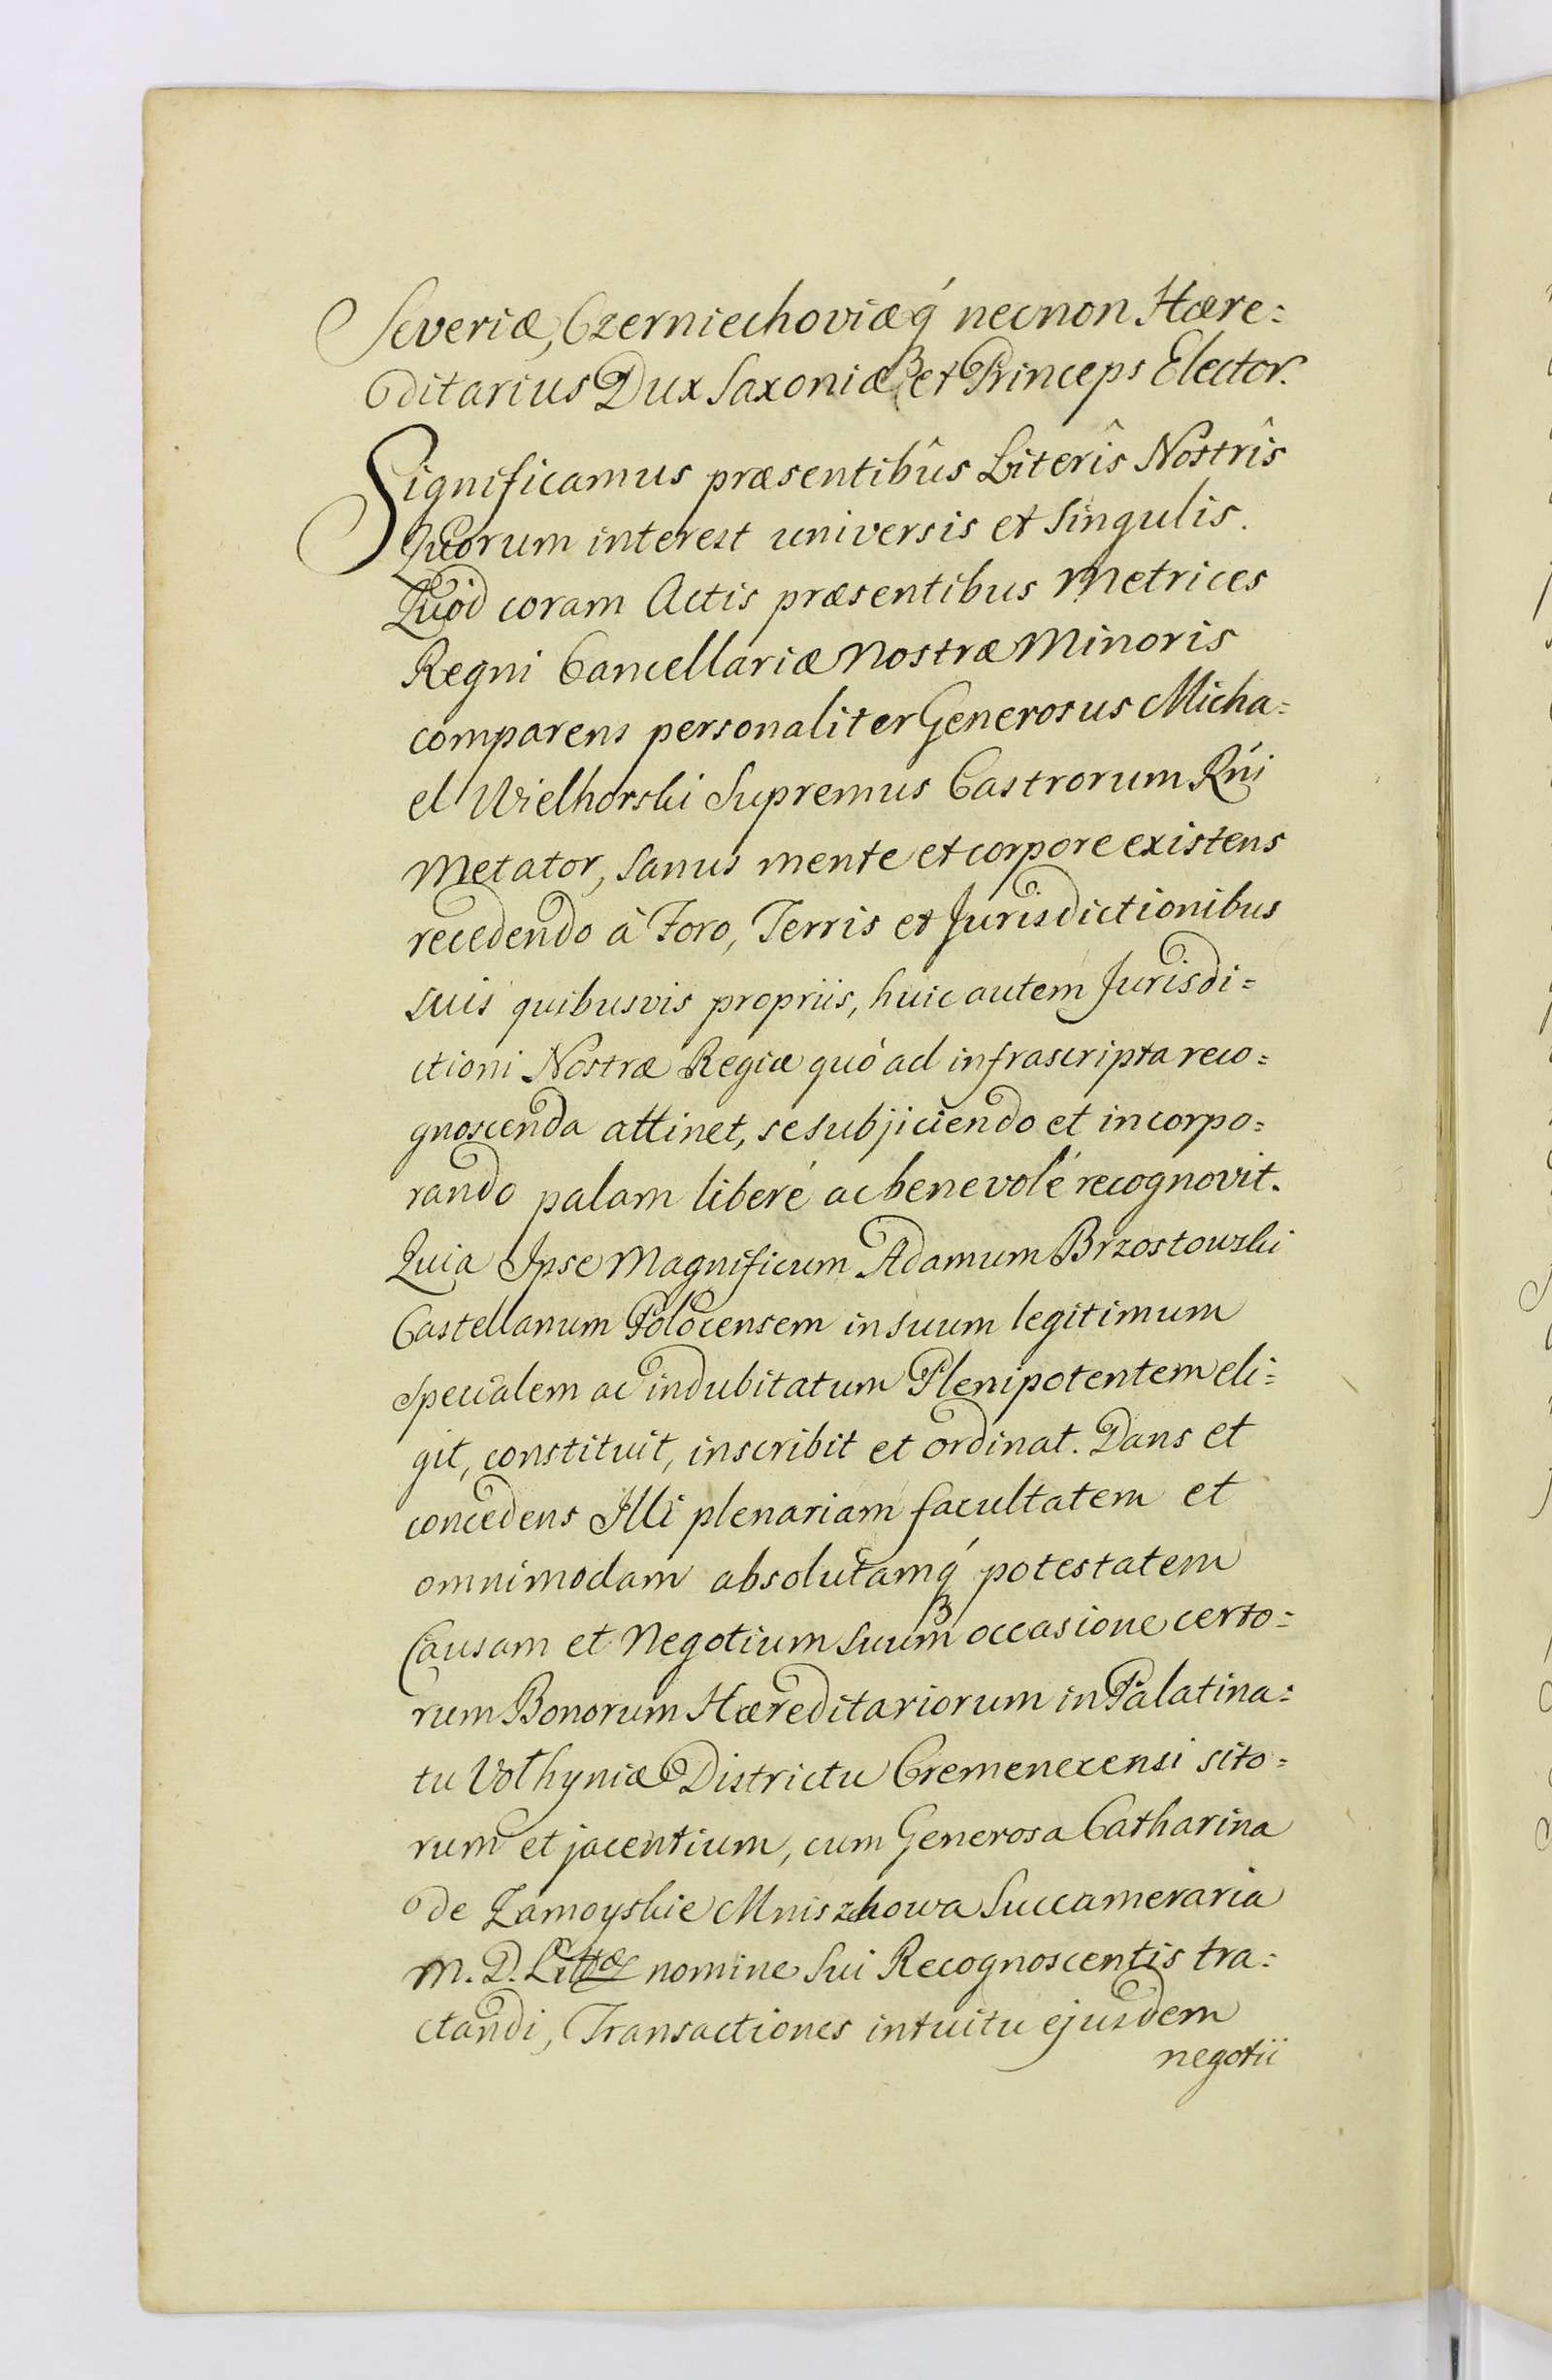 Severiæ, Czerniechoviæq́ necnon Hære=
ditarius Dux Saxoniæ et Princeps Elector.
Significamus præsentibûs Literîs Nostrîs
Quorum interest universis et singulis.
Quod coram Actis præsentibus Metrices
Regni Cancellariæ Nostræ Minoris
comparens personaliter Generosus Micha=
el Wielhorski Supremus Castrorum Rńi
Metator, sanus mente et corpore existens
recedendo à Foro, Terris et Jurisdictionibus
suis quibusvis propriis, huic autem Jurisdi=
ctioni Nostræ Regiæ quó ad infrascripta reco=
gnoscenda attinet, se subjiciendo et incorpo=
rando palam liberé ac benevolé recognovit.
Quia Ipse Magnificum Adamum Brzostowski
Castellanum Polocensem in suum legitimum
specialem ac indubitatum Plenipotentem eli=
git, constituit, inscribit et ordinat. Dans et
concedens Illi plenariam facultatem et
omnimodam absolutamq́ potestatem
Causam et Negotium suum occasione certo=
rum Bonorum Hæreditariorum in Palatina=
tu Volhyniæ Districtu Cremenecensi sito=
rum et jacentium, cum Generosa Catharina
de Zamoyskie Mniszchowa Succameraria
M. D. Littæ nomine sui Recognoscentis tra=
ctandi, Transactiones intuitu ejusdem
negotii